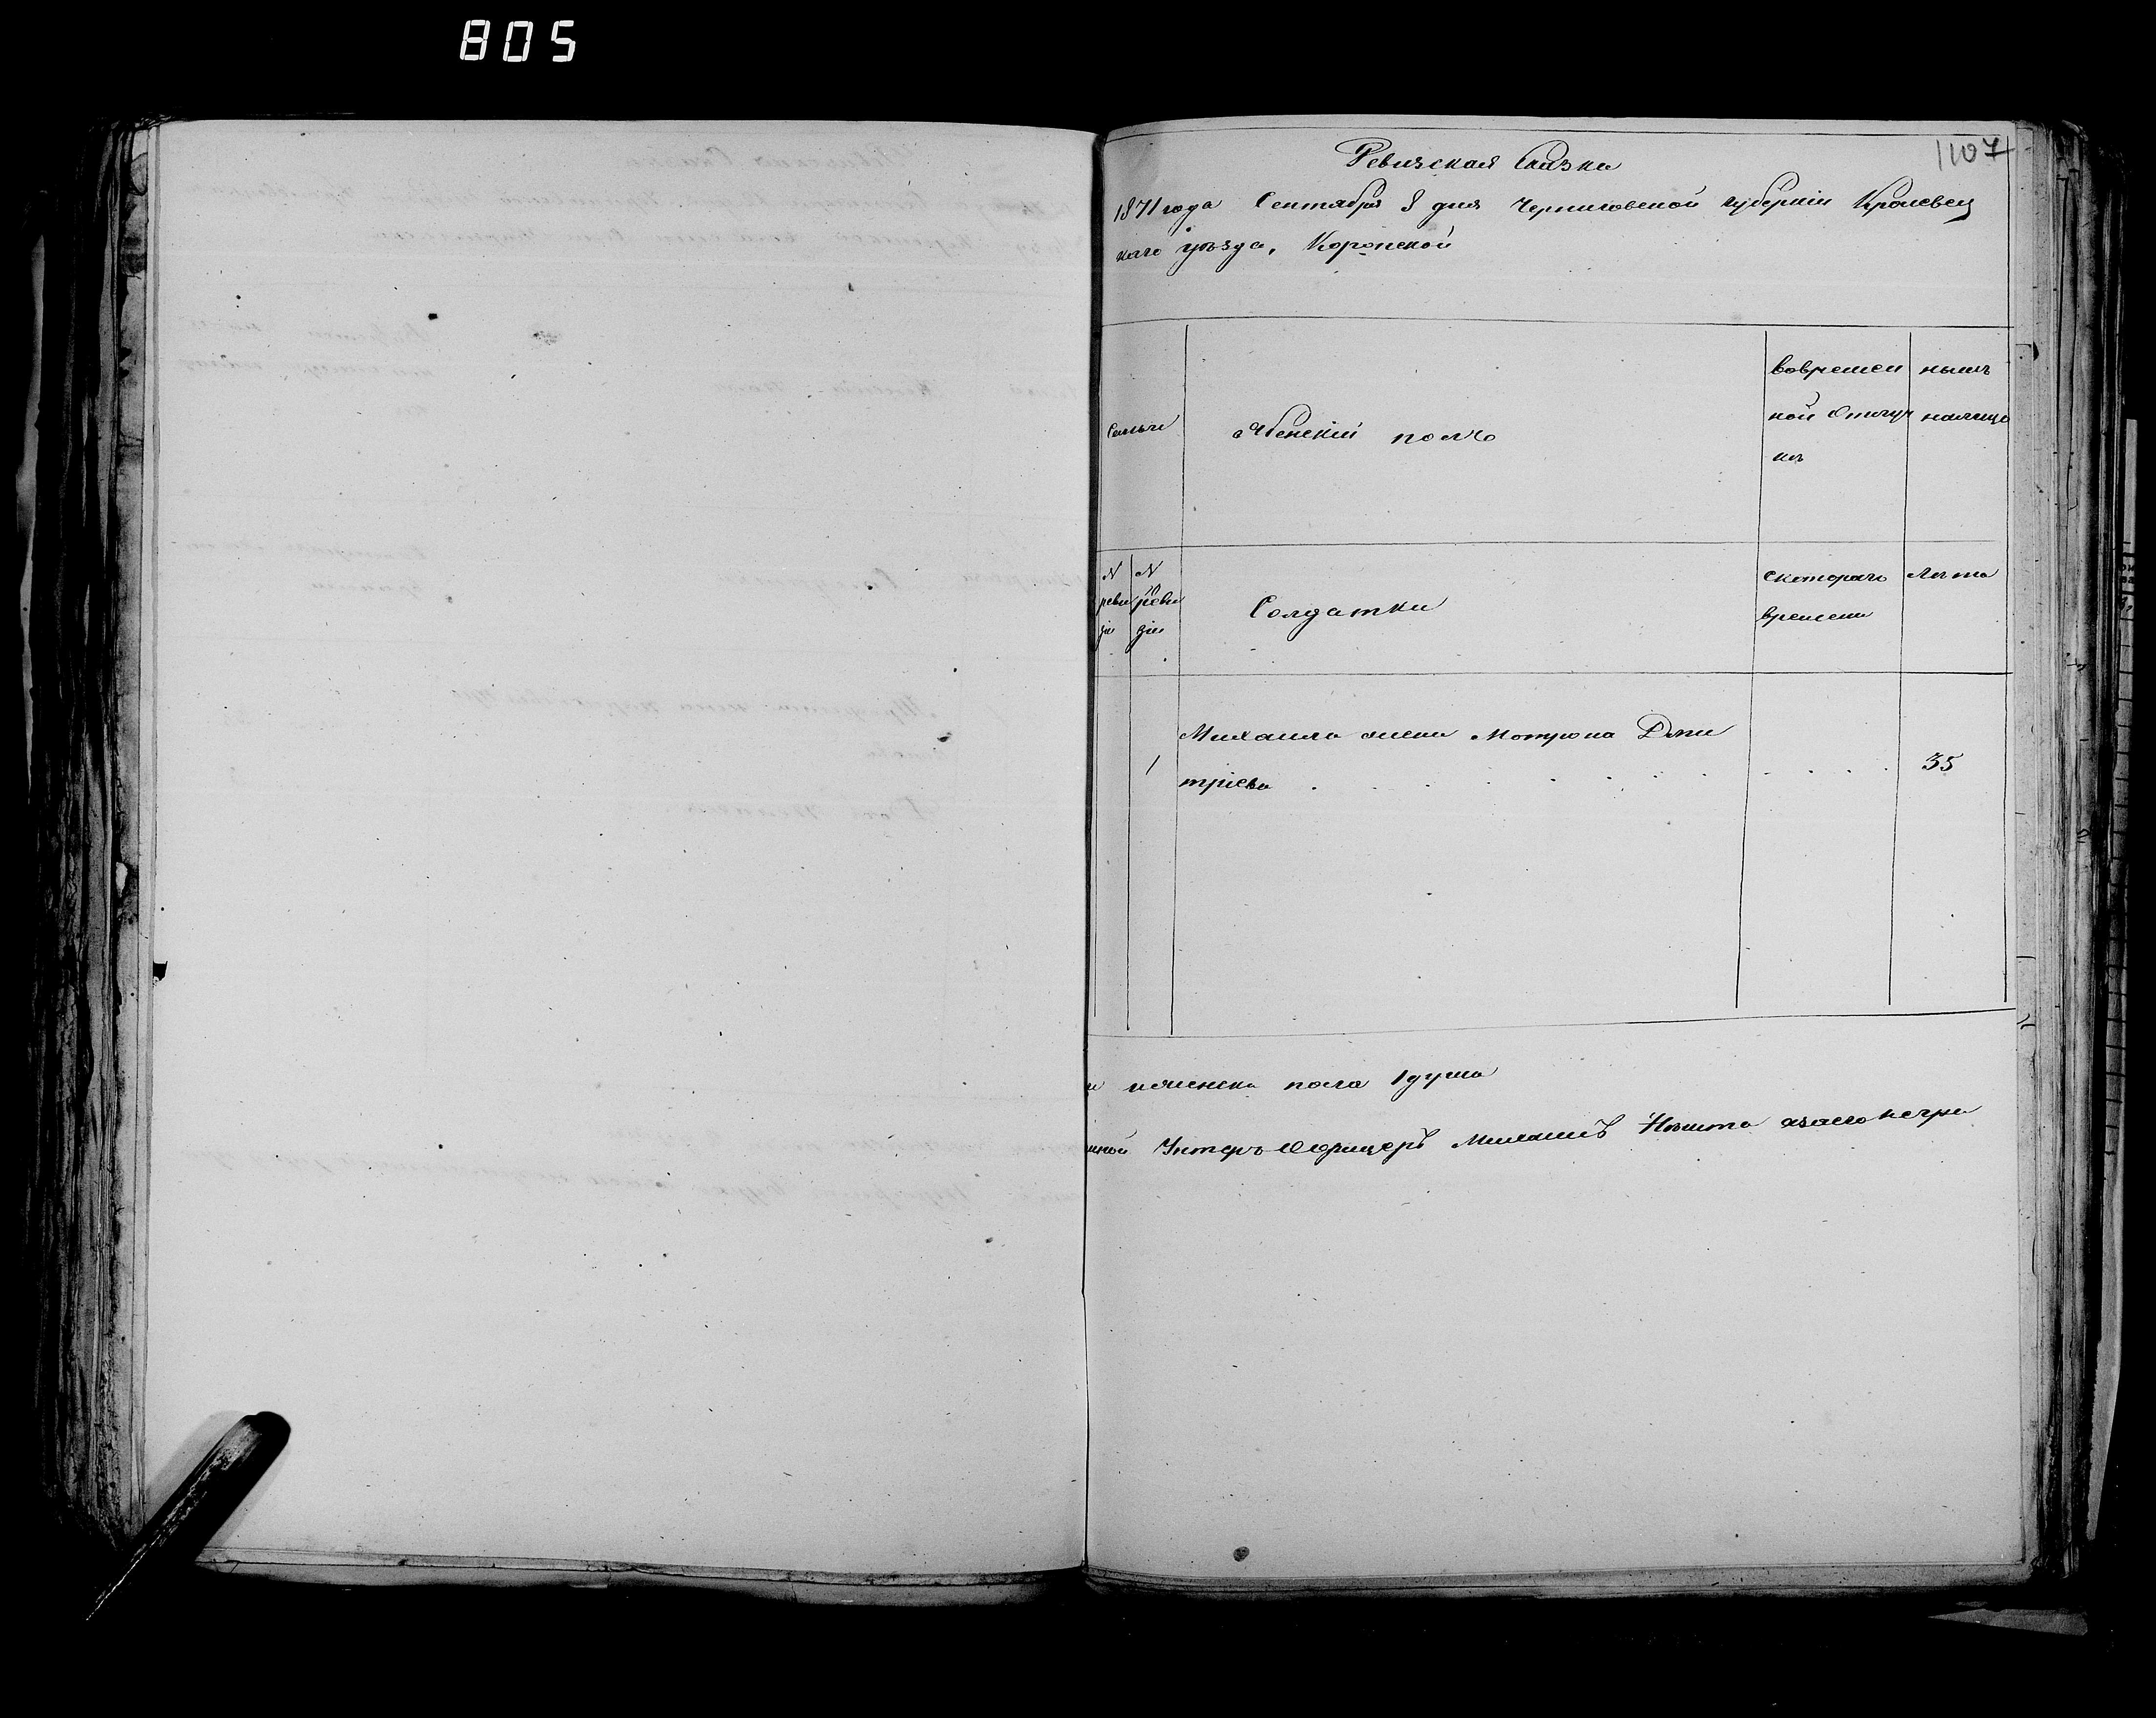 805
1107
Ревизская Сказка
1871 года Сентября 8 дня Черниговской губерніи Кролевец
каго уѣзда, Коропской
Семьи
Женскій полъ
вовремен
ной Отлуч
кѣ
нынѣ
налицо
N
реви
зіи
N
10 реви
зіи
Солдатки
скотораго
времени
Лѣта
1 Михаила жена Мотрона Дми
тріева . . . . . . . . . . . 35
женска пола 1 душа
Унтеръ Офицеръ Михаилъ азаего негра